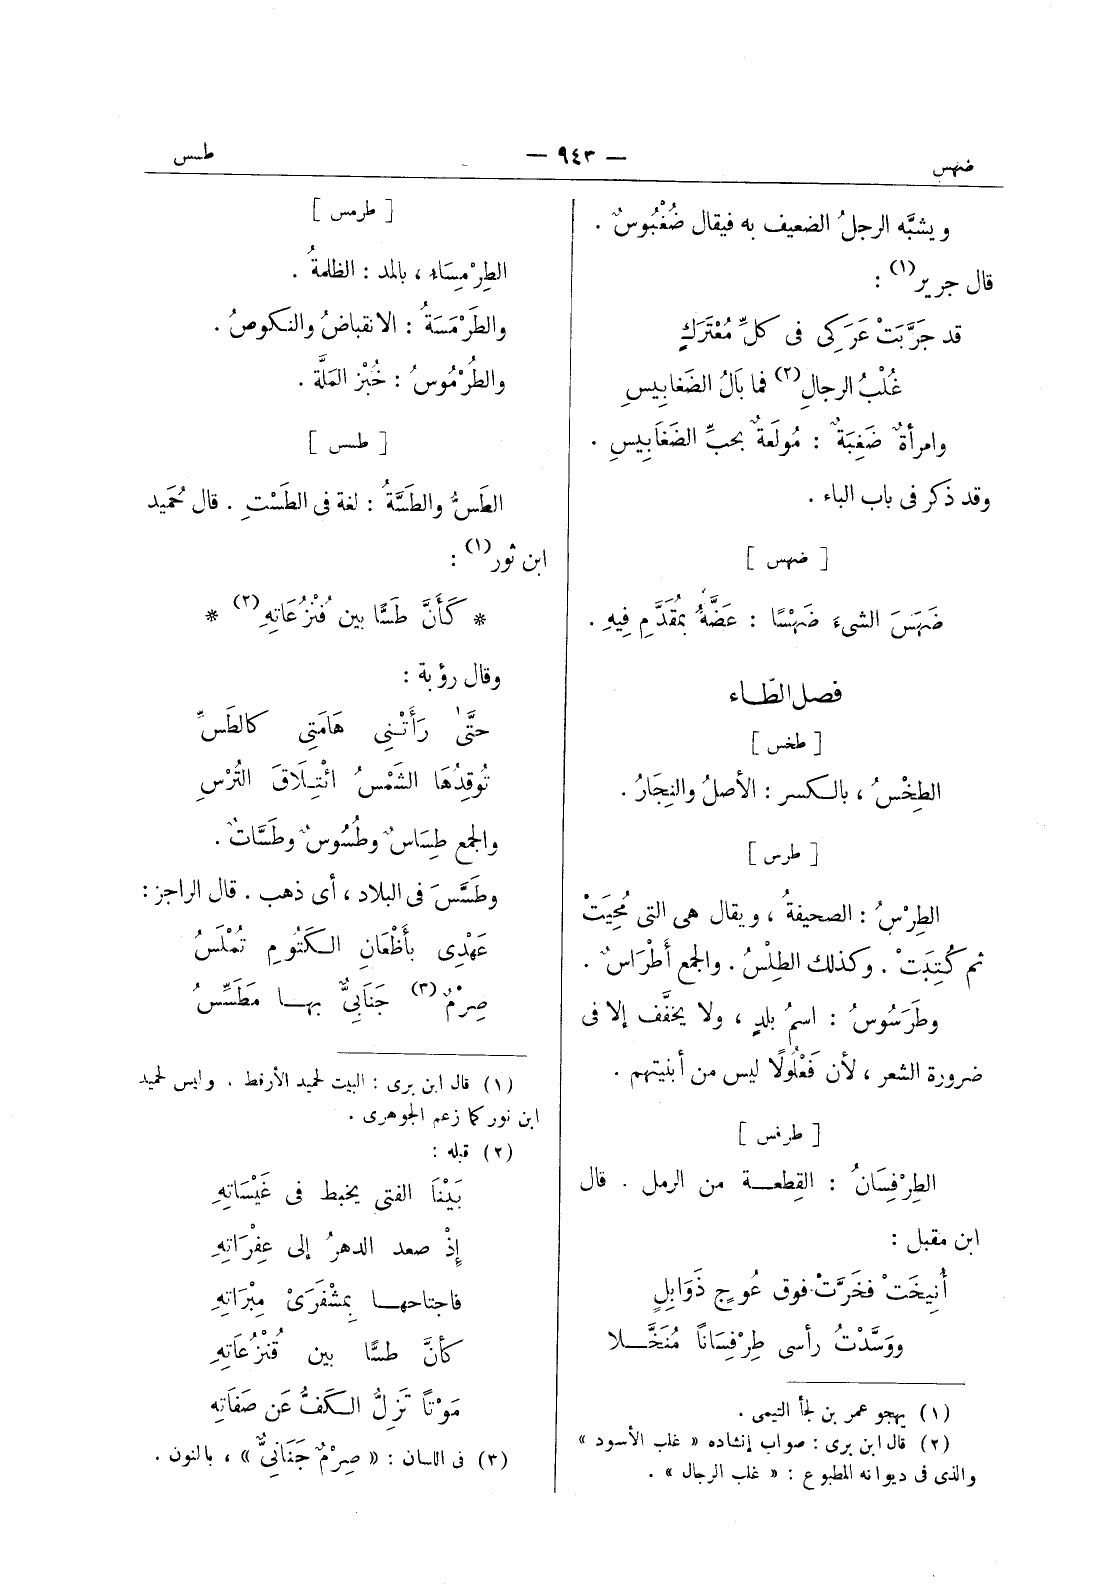 ضهس
— ٩٤٣ —
طسس
ويشبَّه الرجلُ الضعيف به فيقال ضُغْبُوسٌ .
قال جرير(١) :
قد جَرَّبَتْ عَرَكِى فى كلِّ مُعْتَرَكٍ
غُلْبُ الرجالِ(٢) فما بَالُ الضَغابِيسِ
وامرأةٌ ضَغِبَةٌ : مُولَعَةٌ بحبِّ الضَغَابِيسِ .
وقد ذكر فى باب الباء .
[ ضهس ]
ضَهَسَ الشىءَ ضَهْسًا : عَضَّهُ بمُقَدَّمِ فِيهِ .
فصل الطّاء
[ طخس ]
الطِخْسُ ، بالكسر : الأصلُ والنِجَارُ .
[ طرس ]
الطِرْسُ : الصحيفةُ ، ويقال هى التى مُحِيَتْ
ثم كُتِبَتْ . وكذلك الطِلْسُ . والجمع أَطْرَاسٌ .
وطَرَسُوسُ : اسمُ بلدٍ ، ولا يخفَّف إلا فى
ضرورة الشعر ، لأن فَعْلُولًا ليس من أبنيتهم .
[ طرفس ]
الطِرْفِسَانُ : القِطعة من الرمل . قال
ابن مقبل :
أُنِيخَتْ فخَرَّتْ فوق عُوجٍ ذَوَابِلٍ
ووَسَّدْتُ رأسى طِرْفِسَانًا مُنَخَّلا
(١) يهجو عمر بن لجأ التيمى .
(٢) قال ابن برى : صواب إنشاده « غلب الأسود »
والذى فى ديوانه المطبوع : « غلب الرجال » .
[ طرمس ]
الطِرْمِسَاءِ ، بالمد : الظلمةُ .
والطَرْمَسَةُ : الانقباضُ والنكوصُ .
والطُرْمُوسُ : خُبْز المَلَّة .
[ طسس ]
الطَسُّ والطَسَّةُ : لغة فى الطَسْتِ . قال حُمَيد
ابن ثور(١) :
* كَأَنَّ طَسًّا بين قُنْزُعَاتِهِ(٢) *
وقال رؤبة :
حتَّى رَأَتْنِى هَامَتِى كالطَسِّ
تُوقِدُهَا الشَمْسُ ائْتِلَاقَ التُرْسِ
والجمع طِسَاسٌ وطُسُوسٌ وطَسَّاتٌ .
وطَسَّسَ فى البلاد ، أى ذهب . قال الراجز :
عَهْدِى بأَظْعَانِ الكَتُومِ تُمْلَسُ
صِرْمٌ(٣) جَنَابِىٌّ بها مَطَسِّسُ
(١) قال ابن برى : البيت لحميد الأرقط . وليس لحميد
ابن ثور كما زعم الجوهرى .
(٢) قبله :
بَيْنَا الفتى يخبط فى غَيْسَاتِهِ
إذْ صعد الدهرُ إلى عِفْرَاتِهِ
فاجتاحها بِمشْفَرَىْ مِبْرَاتِهِ
كأنَّ طسًّا بين قُنْزُعَاتِهِ
مَوْتًا تَزِلُّ الكَفُّ عَن صَفَاتِهِ
(٣) فى اللسان : « صِرْمٌ جَنَانِىٌّ » ، بالنون .